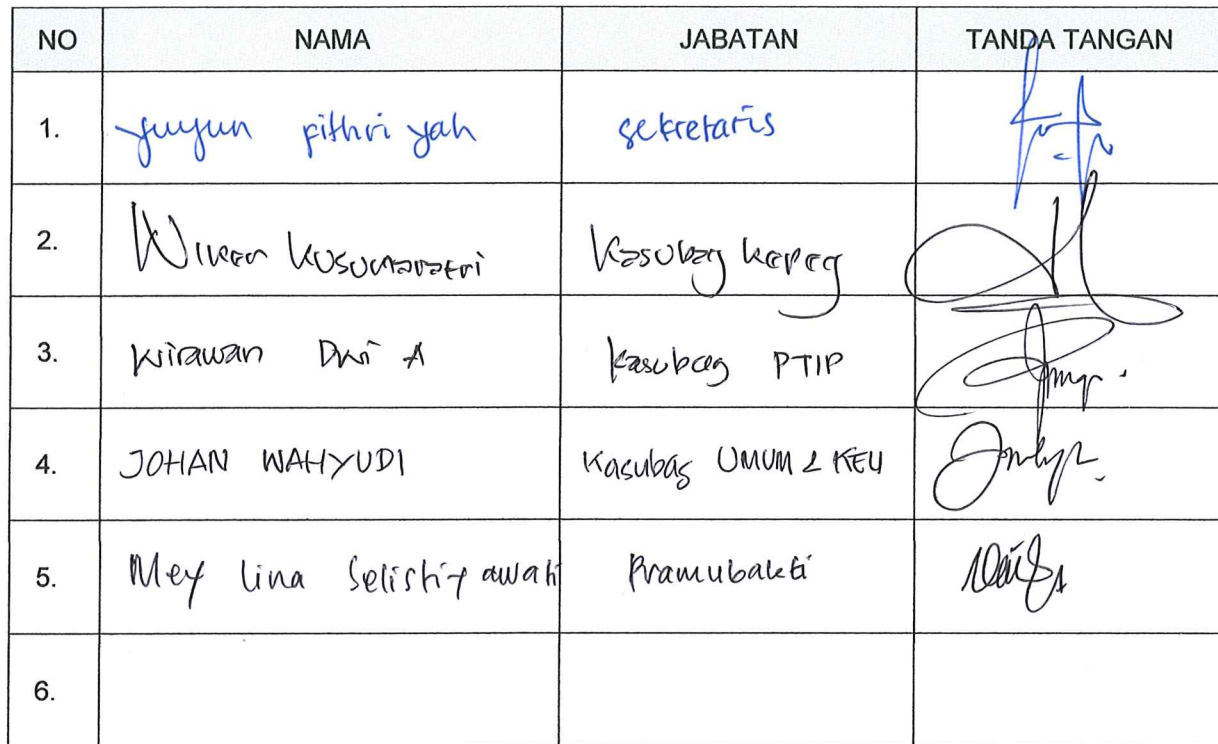 NO NAMA JABATAN TANDA TANGAN
1. Yuyun Fithri yah Sekretaris
2. Wiken Kusumaratri Kasubag Kepeg
3. Wirawan Dwi A Kasubag PTIP
4. JOHAN WAHYUDI Kasubag UMUM & KEU
5. Mey Lina Selistiyawati Pramubakti
6.